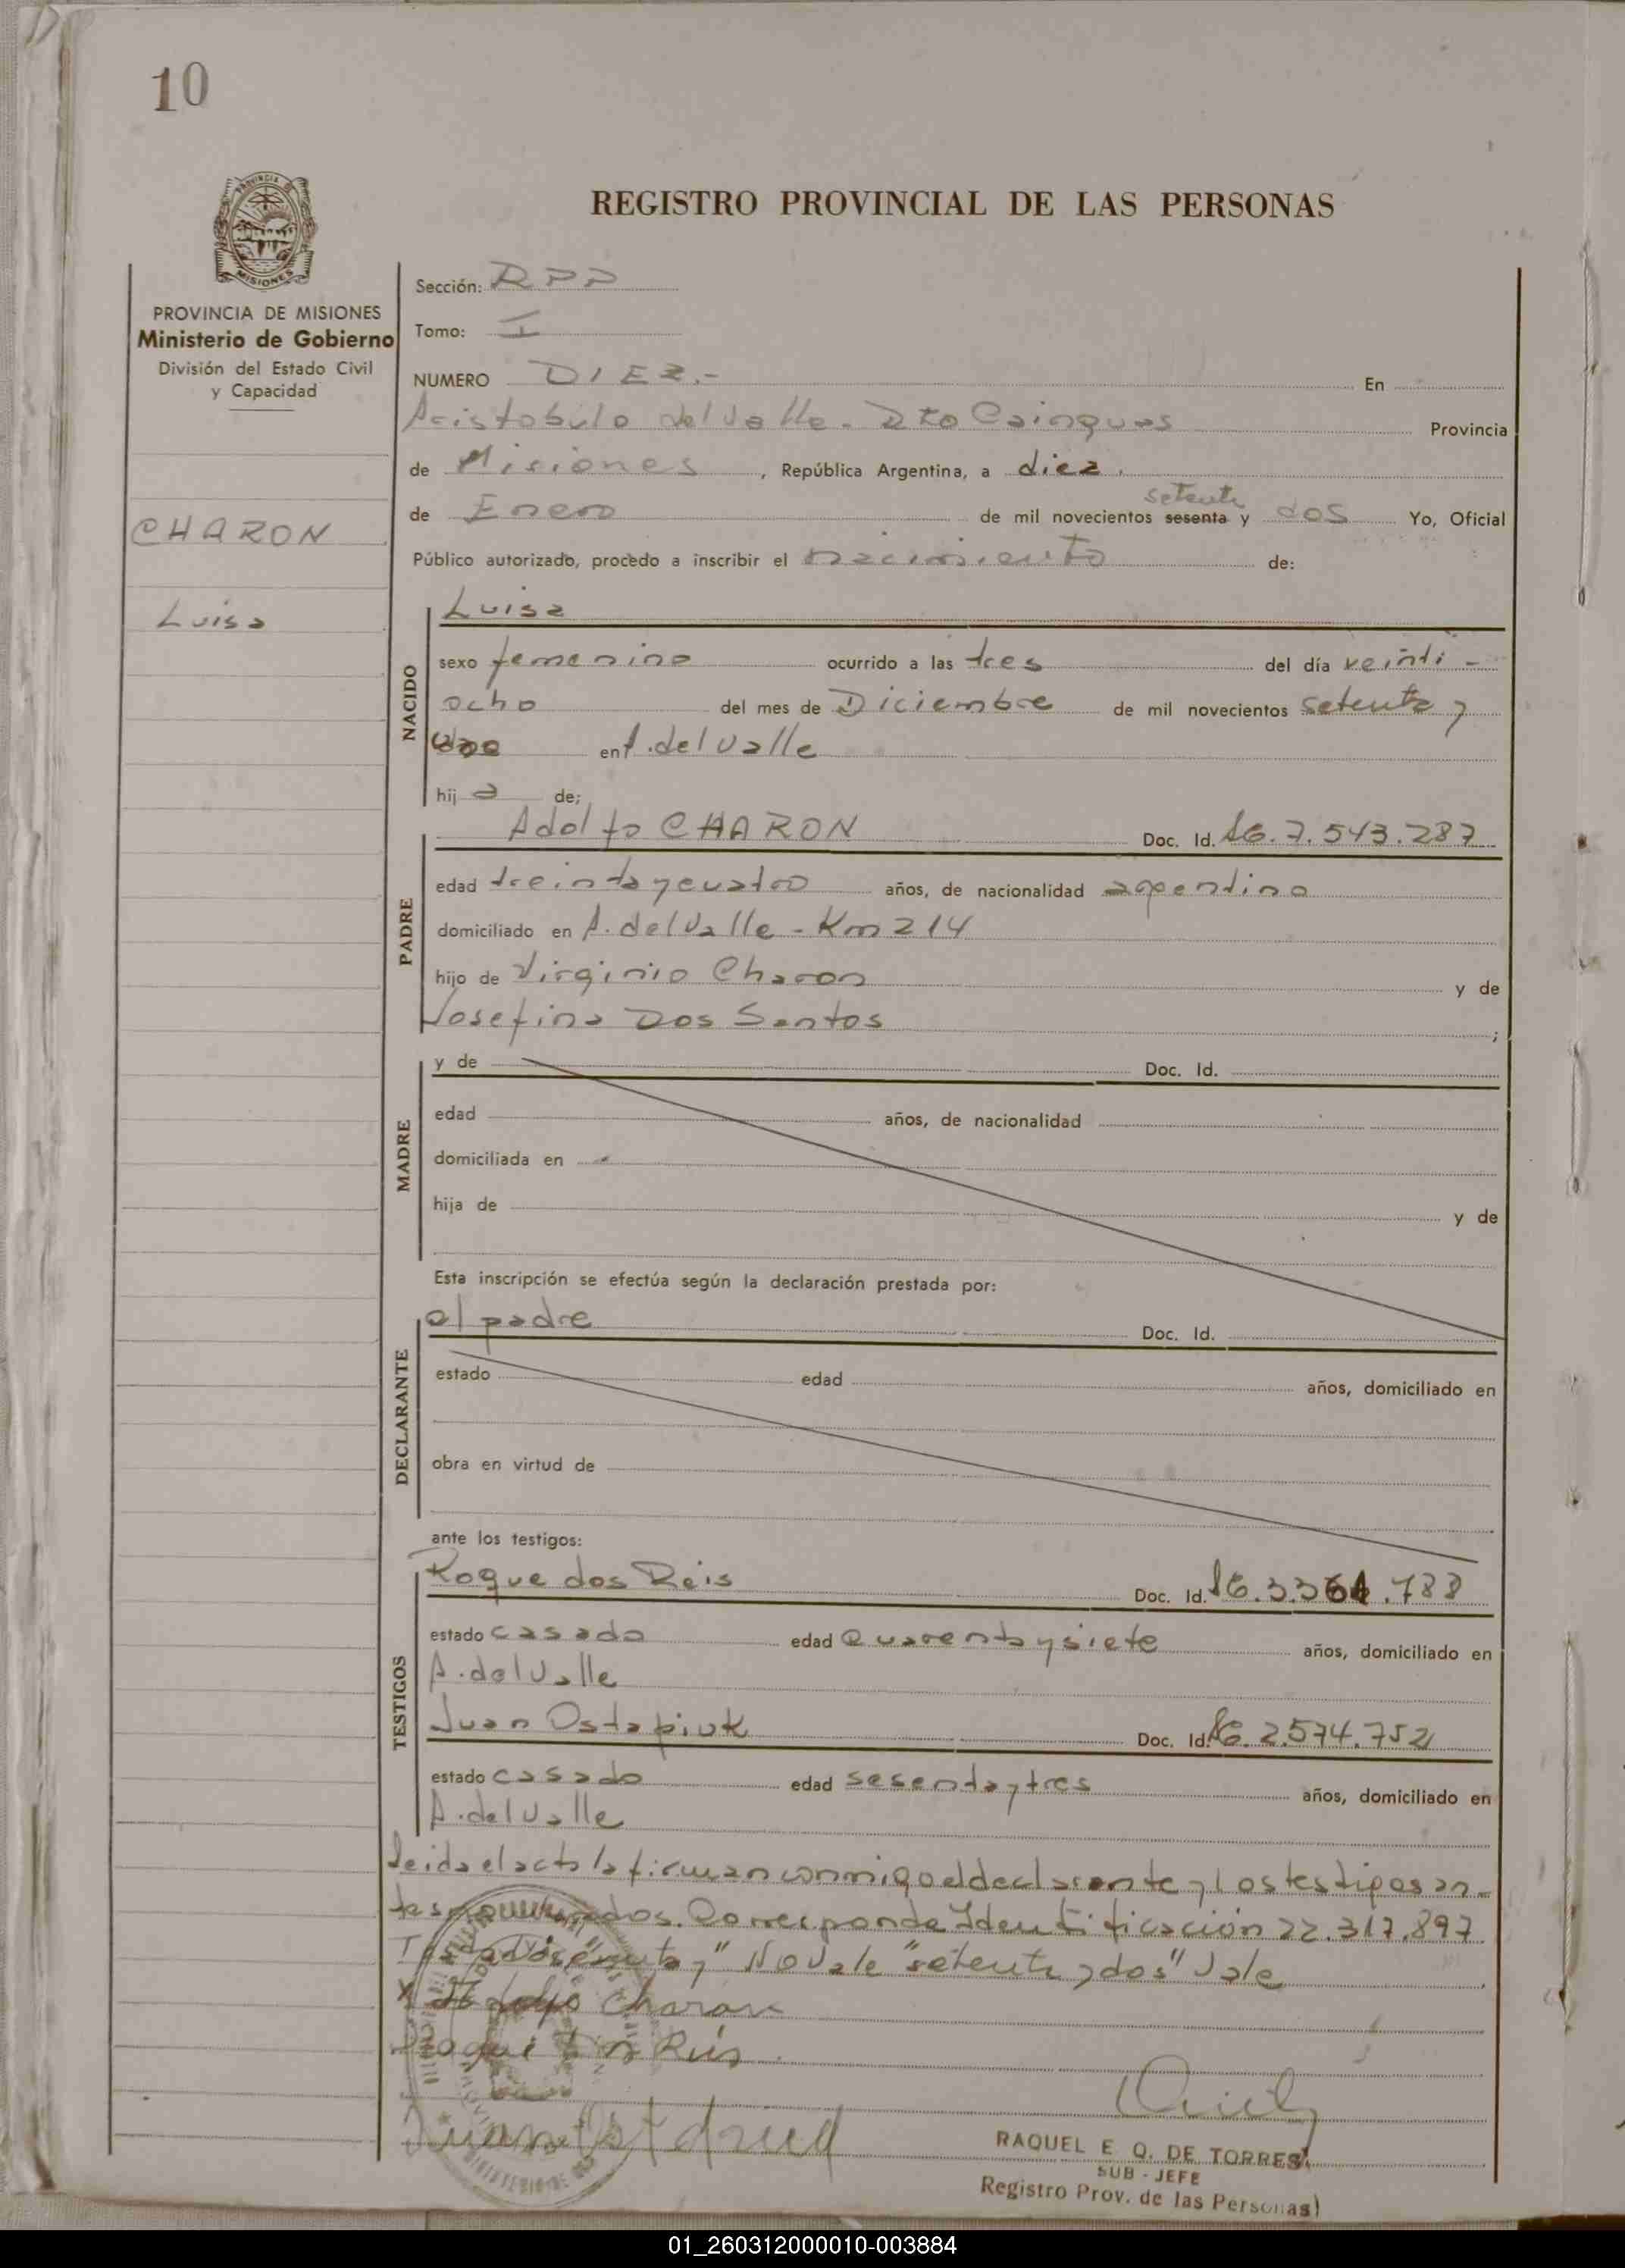 10
REGISTRO PROVINCIAL DE LAS PERSONAS
PROVINCIA DE MISIONES
Ministerio de Gobierno
División del Estado Civil
y Capacidad
CHARON
Luisa
Sección: RPP
Tomo: I
NUMERO DIEZ.- En
Aristobulo del Valle. Dto Cainguas Provincia
de Misiones, República Argentina, a diez.
setenta
de Enero de mil novecientos sesenta y dos Yo, Oficial
Público autorizado, procedo a inscribir el nacimiento de:
NACIDO
Luisa
sexo femenino ocurrido a las tres del día veinti-
ocho del mes de Diciembre de mil novecientos setenta y
en A. del Valle
hij a de;
PADRE
Adolfo CHARON Doc. Id. 7.543.287
edad treinta y cuatro años, de nacionalidad argentino
domiciliado en A. del Valle - Km 214
hijo de Virginio Charon y de
Josefina Dos Santos ;
MADRE
y de Doc. Id.
edad años, de nacionalidad
domiciliada en
hija de y de
Esta inscripción se efectúa según la declaración prestada por:
DECLARANTE
el padre Doc. Id.
estado edad años, domiciliado en
obra en virtud de
ante los testigos:
TESTIGOS
Roque dos Reis Doc. Id.
estado casado edad Quarenta y siete años, domiciliado en
A. del Valle
Juan Ostapiuk Doc. Id. 2.574.752
estado casado edad sesenta y tres años, domiciliado en
A. del Valle
Leida el acta la firman conmigo el declarante y los testigos an-
tes Corresponde Identificación 22.317.897
"No Vale "setenta y dos" Vale
x Adolfo Charon
RAQUEL E. Q. DE TORRES
SUB - JEFE
Registro Prov. de las Personas)
01_260312000010-003884